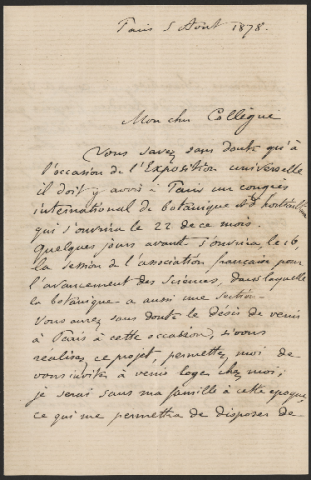 Paris 5 Aout 1878.
Mon cher Collègue
Vous savez sans doute qu'à
l'occasion de l'Exposition universelle
il doit y avoir à Paris un congrès
international de botanique et d'horticulture
qui s'ouvrira le 22 de ce mois.
Quelques jours avant s'ouvrira, le 16,
la session de l'association française pour
l'avancement des Sciences, dans laquelle
la botanique a aussi une section.
Vous aurez sans doute le désir de venir
à Paris à cette occasion, si vous
réalisez ce projet, permettez moi de
vous inviter à venir loger chez moi;
je serai sans ma famille à cette époque,
ce qui me permettra de disposer de